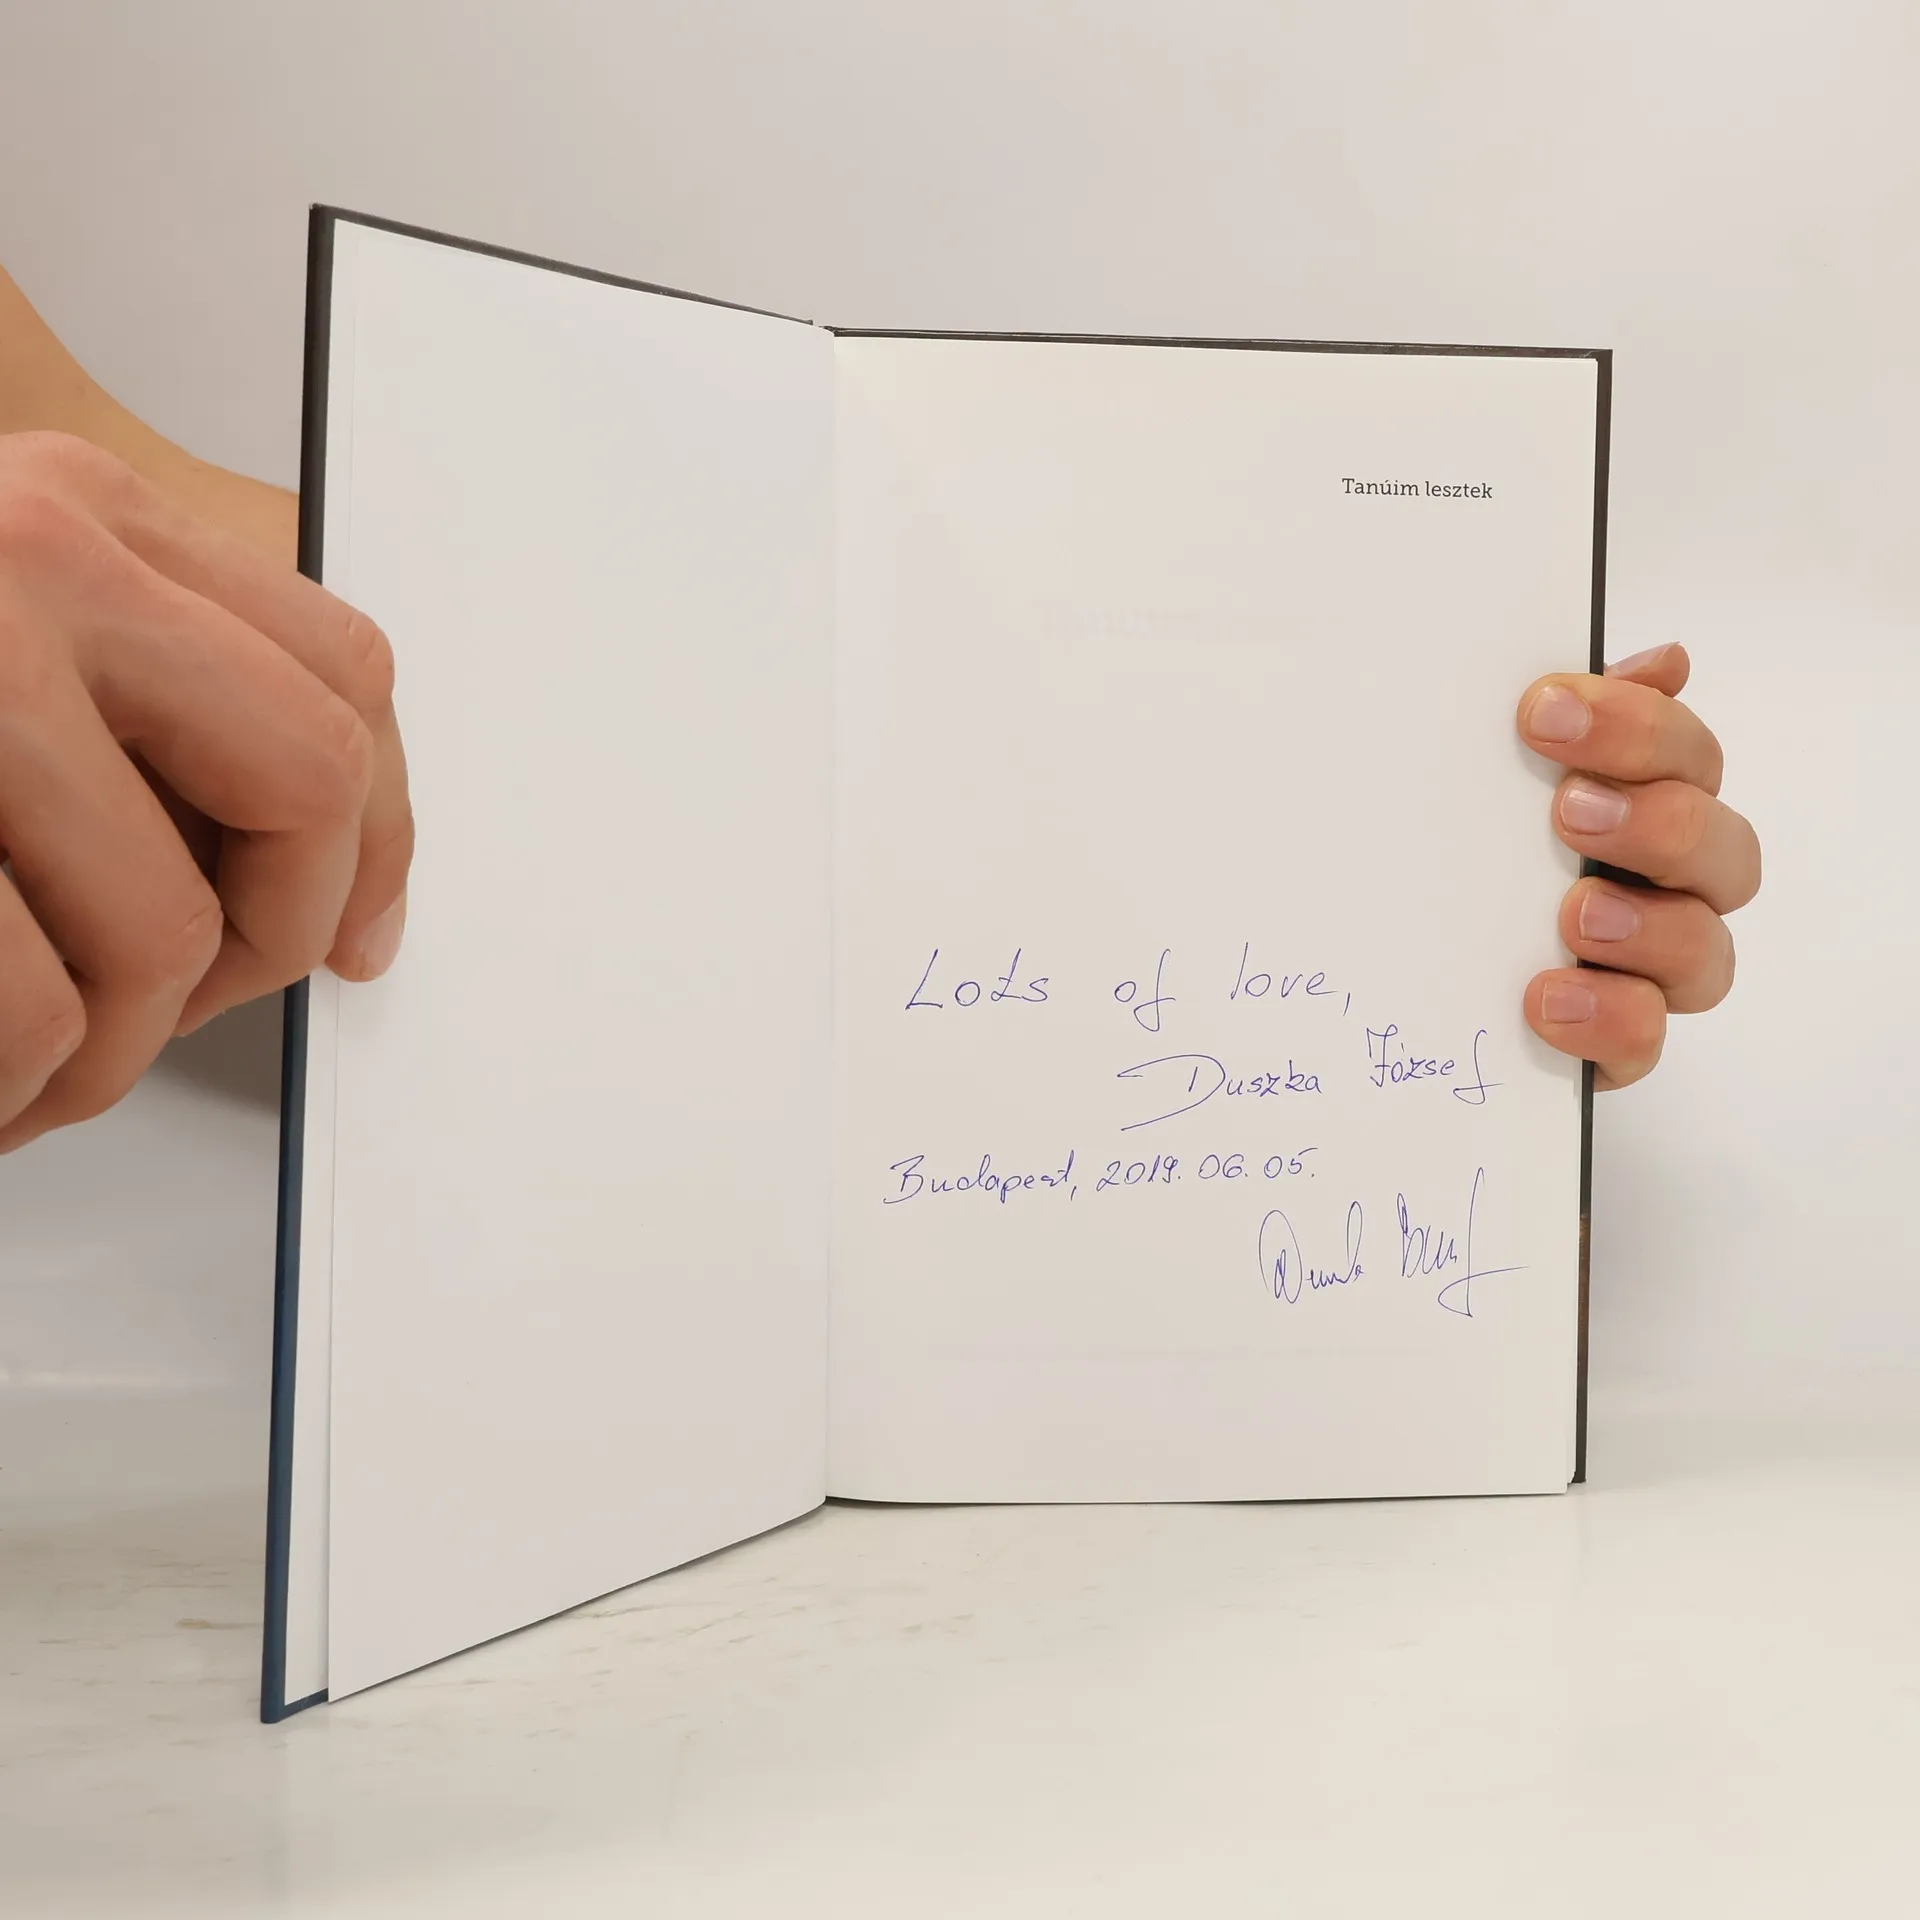 Tanúim lesztek
Lots of love,
Duszka József
Budapest, 2019. 06. 05.